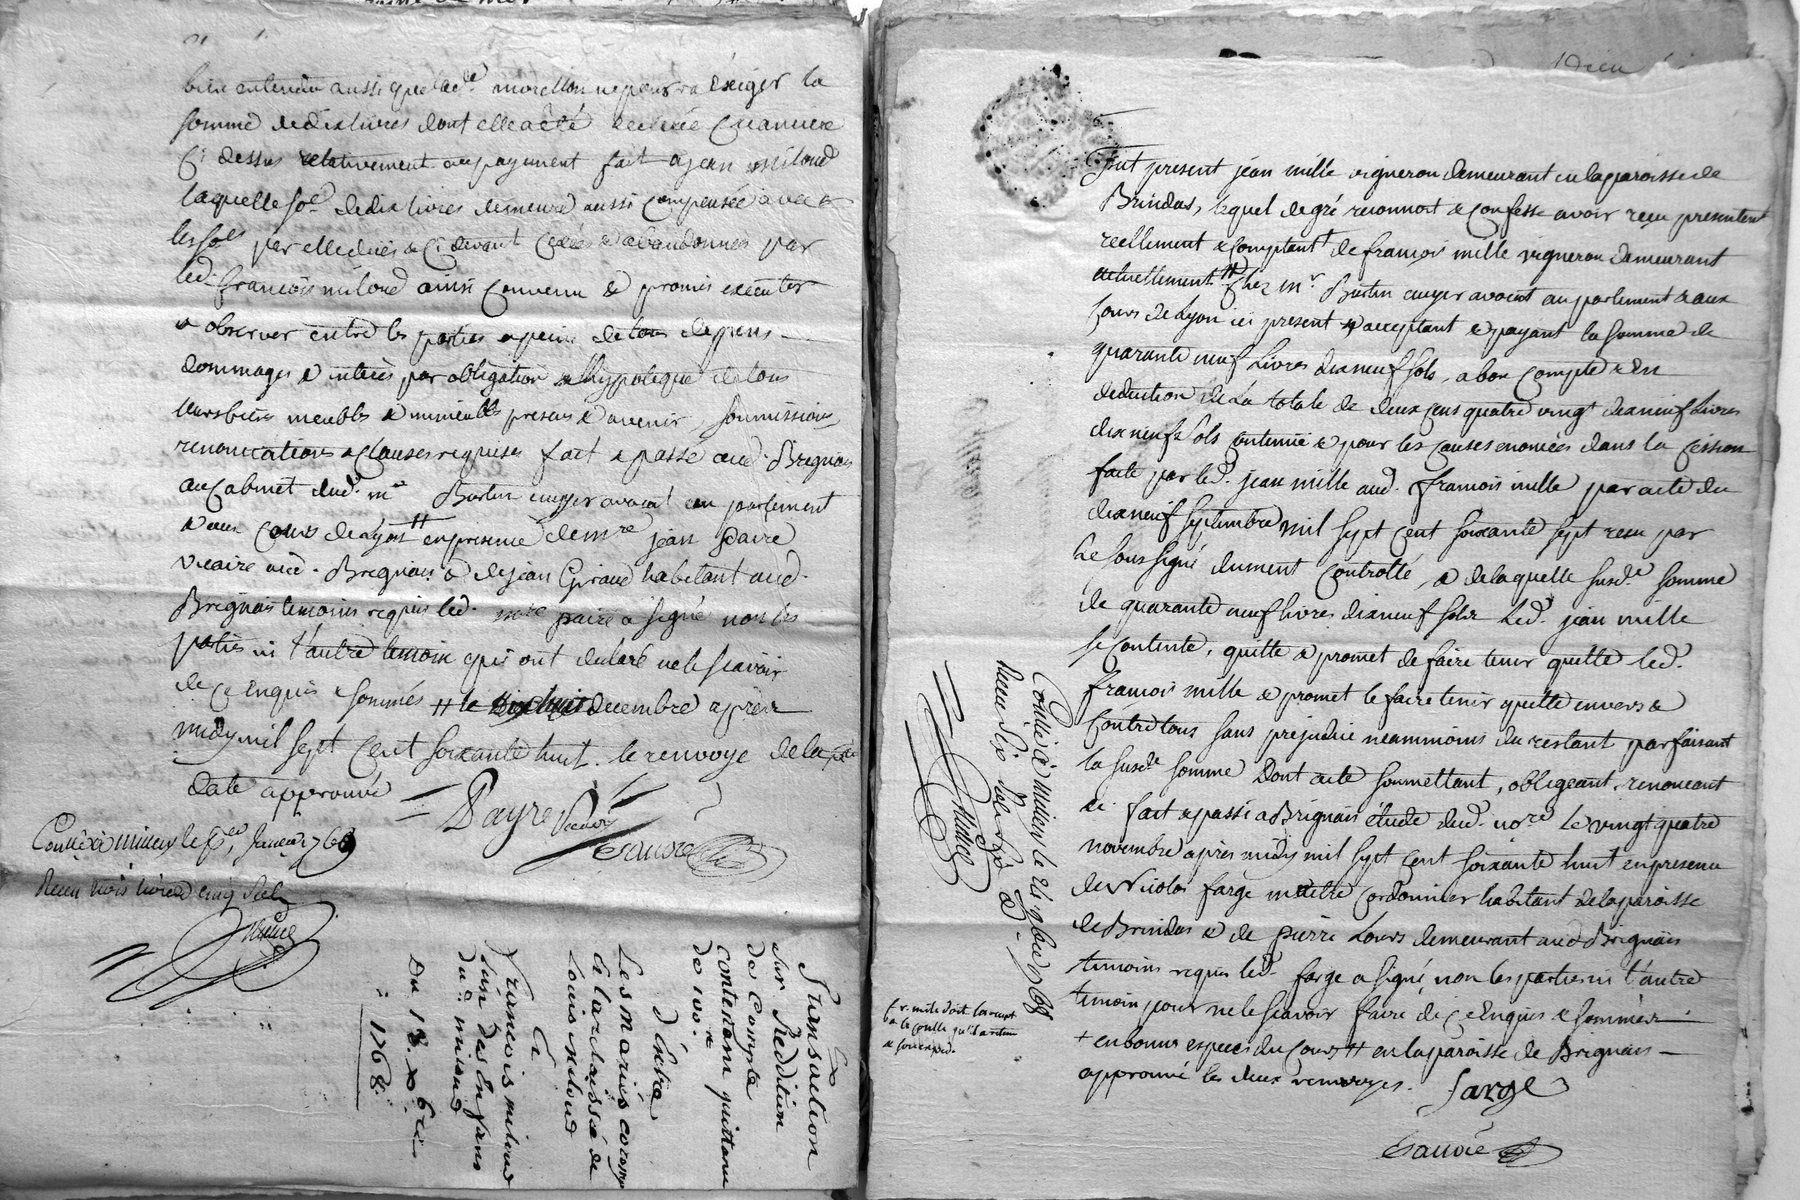 bien entendu aussi que lad.e morellon ne poura exiger la
somme de dix livres dont elle a été declarée creanciere
Cy dessus relativement au payement fait a jean miloud
laquelle so.e de dix livres demeure aussi compensée avec
les so.es par elle dues & Cy devant cedées & abandonnés par
led. françois miloud ainsi convenu & promis executer
& observer entre les parties a peine de tous depens
dommages & interes par obligation & hypoteque de tous
leurs biens meubles & immeubles presens & avenir, soumissions,
renonciations & clauses requises fait & passé aud. Brignais
au Cabinet dud. m.e Burtin ecuyer avocat en parlement
& aux cours de Lyon en presence de m.re jean paire
vicaire aud. Brignais & de jean Giraud habitant aud.
Brignais temoins requis led. m.re paire a signé non les
parties ni l'autre temoin qui ont declaré ne le scavoir
de ce Enquis & sommés // le dix huit decembre après
midy mil sept cent soixante huit. le renvoye de la
date approuvé
Payre vicaire
Sauvée
Conllé à millery le janvier 1769
Receu trois livres cinq sols
Transaction
sur Reddition
de Compte
contenant quittance
de 100.#
d'entre
Les mariés
& la relaissée de
Louis miloud
Et
francois miloud
l'un des Enfans
du d. miloud
Du 18. x.bre
1768.
Fut present jean mille vigneron demeurant en la paroisse de
Brindas, lequel de gré reconnoit & confesse avoir reçu presentemt
reellement & comptant + de françois mille vigneron demeurant
actuellement // Chez m.r Burtin ecuyer avocat au parlement & aux
Cours de Lyon ici present & acceptant & payant la somme de
quarante neuf livres dix neuf sols, a bon compte & en
deduction de la totale de deux cens quatre vingt dix neuf livres
dix neuf sols contenue & pour les causes enoncées dans la cession
faite par led. jean mille aud. françois mille par acte du
dix neuf septembre mil sept cent soixante sept recu par
le soussigné dument controllé, & de laquelle susd.e somme
de quarante neuf livres dix neuf sols led. jean mille
se contente, quitte & promet de faire tenir quitte led.
françois mille & promet le faire tenir quitte envers &
contre tous sans prejudice neammoins du restant parfaisant
la susd.e somme Dont acte soumettant, obligeant, renoncant
&c. fait & passé a Brignais étude dud. no.re le vingt quatre
novembre après midy mil sept cent soixante huit en presence
de Nicolas farge maitre cordonnier habitant de la paroisse
de Brindas & de pierre Lours demeurant aud. Brignais
temoins requis led. farge a signé non les parties ni l'autre
temoin pour ne le scavoir faire de ce Enquis & sommés
+ en bonnes especes du cours // en la paroisse de Brignais
approuvé les deux renvoyes. farge
Sauvée
Conllé à millery le 9bre 1768
receu six
f. mille doit
& le conlle qu'il